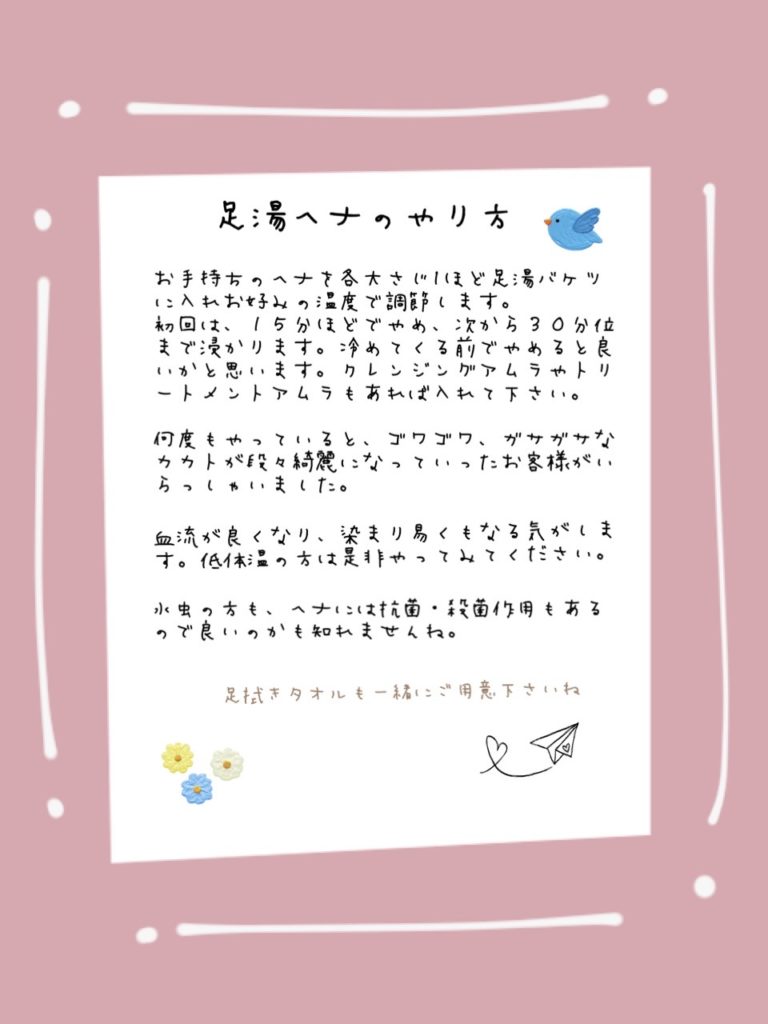 足湯ヘナのやり方
お手持ちのヘナを各大さじ1ほど足湯バケツ
に入れお好みの温度で調節します。
初回は、15分ほどでやめ、次から30分位
まで浸かります。冷めてくる前でやめると良
いかと思います。クレンジングアムラやトリ
ートメントアムラもあれば入れて下さい。
何度もやっていると、ゴワゴワ、ガサガサな
カカトが段々綺麗になっていったお客様がい
らっしゃいました。
血流が良くなり、染まり易くもなる気がしま
す。低体温の方は是非やってみてください。
水虫の方も、ヘナには抗菌・殺菌作用もある
ので良いのかも知れませんね。
足拭きタオルも一緒にご用意下さいね